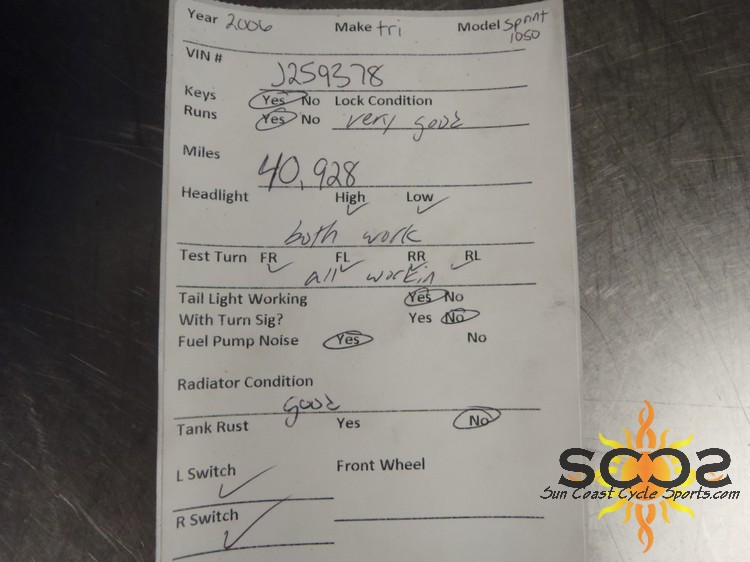 Year 2006 Make tri Model Sprint
1050
VIN # J259378
Keys Yes No Lock Condition
Runs Yes No very good
Miles 40,928
Headlight High Low
both work
Test Turn FR FL RR RL
all workin
Tail Light Working Yes No
With Turn Sig? Yes No
Fuel Pump Noise Yes No
Radiator Condition
good
Tank Rust Yes No
L Switch Front Wheel
R Switch
SCCS
Sun Coast Cycle Sports.com